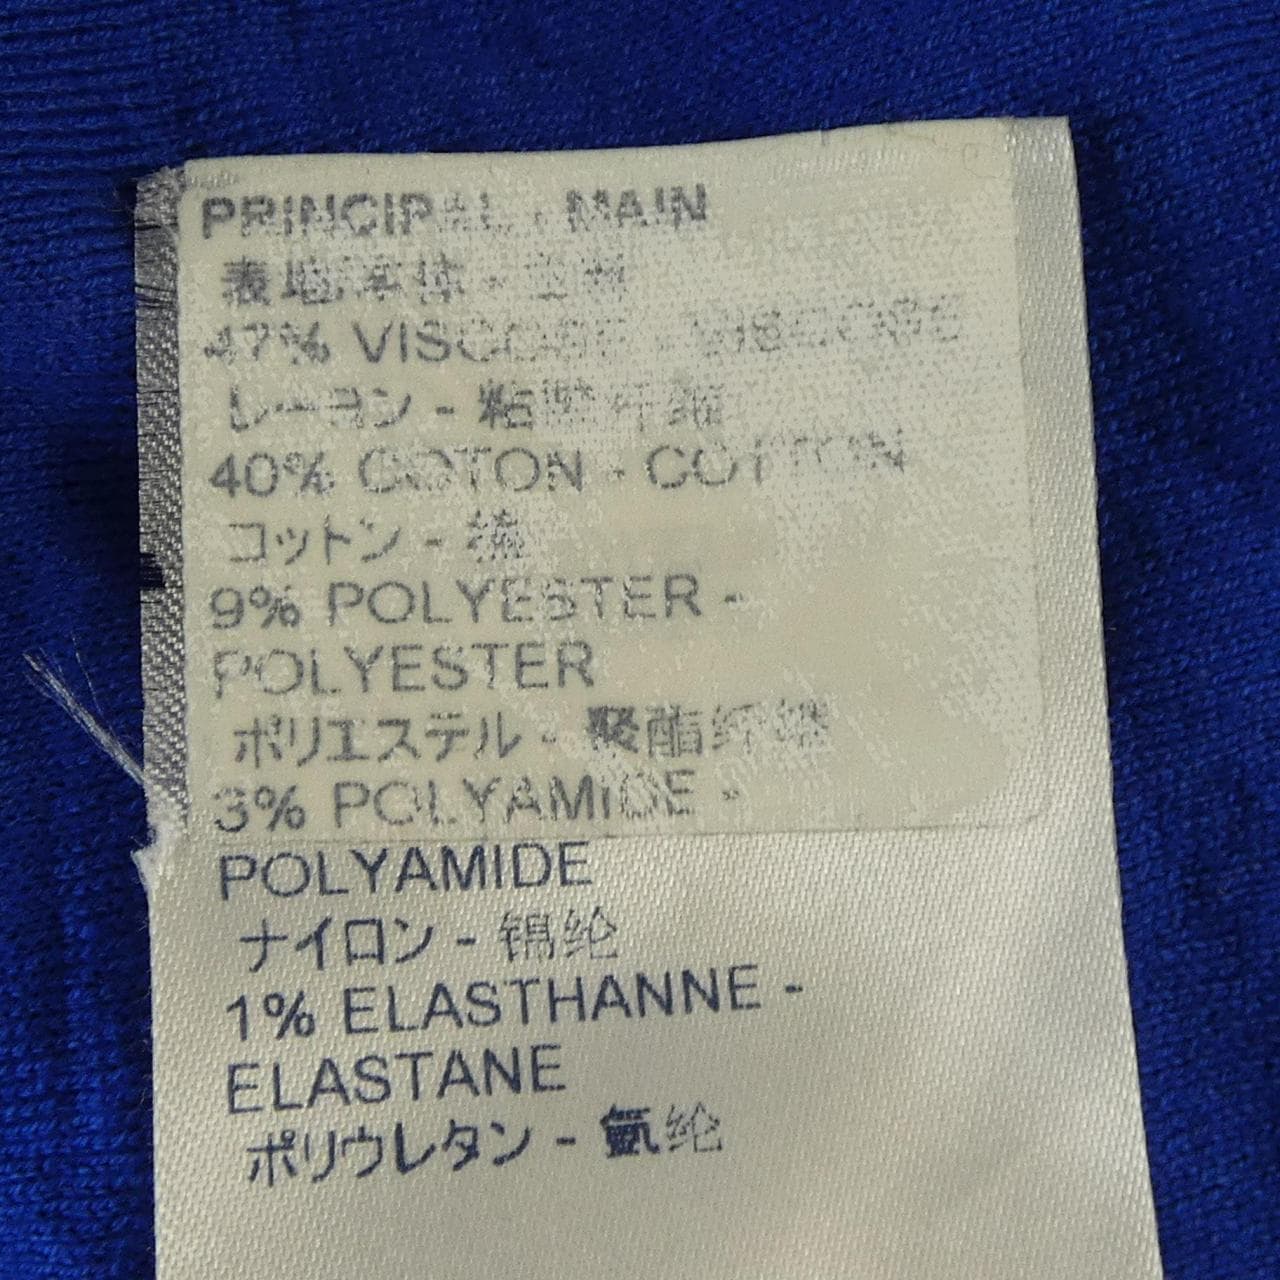 PRINCIPAL - MAIN
表地/本体 - 主料
47% VISCOSE - VISCOSE
レーヨン - 粘胶纤维
40% COTON - COTTON
コットン - 棉
9% POLYESTER -
POLYESTER
ポリエステル - 聚酯纤维
3% POLYAMIDE -
POLYAMIDE
ナイロン - 锦纶
1% ELASTHANNE -
ELASTANE
ポリウレタン - 氨纶